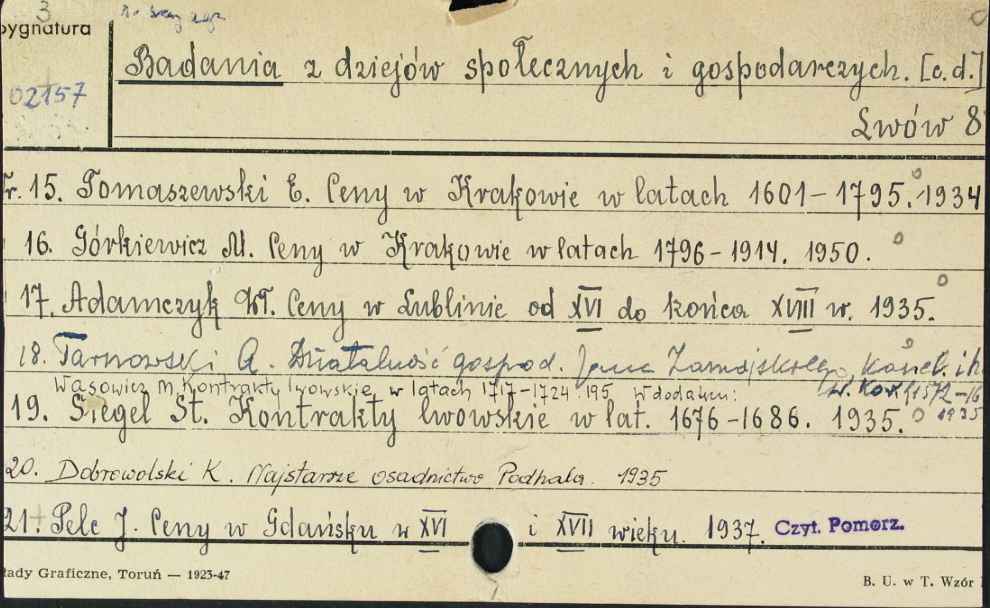 3
Sygnatura
02157
Badania z dziejów społecznych i gospodarczych. [c.d.]
Lwów 8
Nr. 15. Tomaszewski E. Ceny w Krakowie w latach 1601-1795. 1934
16. Górkiewicz M. Ceny w Krakowie w latach 1796-1914. 1950.
17. Adamczyk Wł. Ceny w Lublinie od XVI do końca XVIII w. 1935.
18. Tarnowski A. Działalność gospod. Jana Zamojskiego, kancl. i h
Wąsowicz M. Kontrakty lwowskie w latach 1717-1724. 195 W dodatku:
w. Kor. (1572-16
19. Siegel St. Kontrakty lwowskie w lat. 1676-1686. 1935.
1935
20. Dobrowolski K. Najstarsze osadnictwo Podhala. 1935
21+ Pelc J. Ceny w Gdańsku w XVI i XVII wieku. 1937. Czyt. Pomorz.
łady Graficzne, Toruń — 1923-47
B. U. w T. Wzór